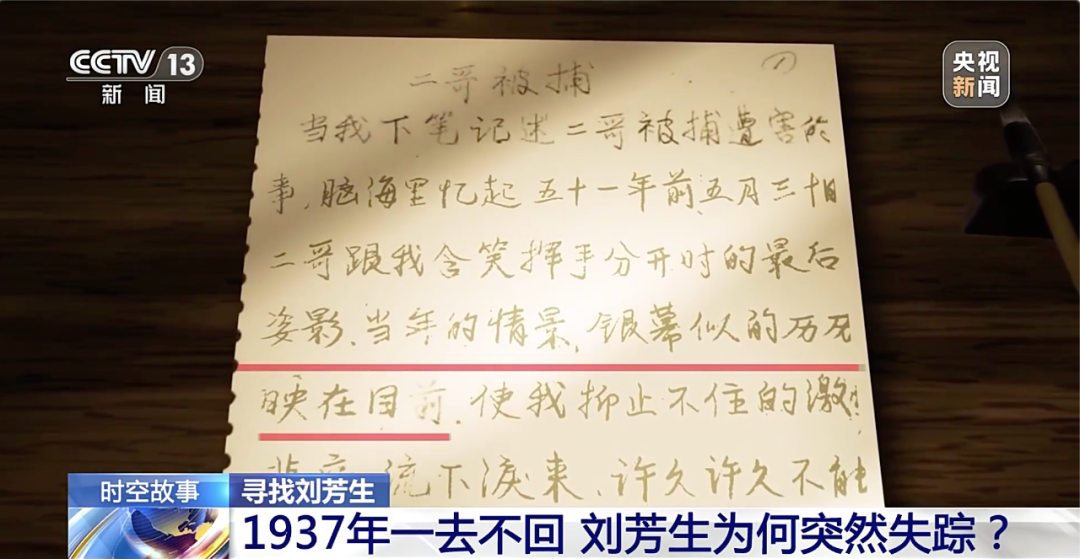 CCTV 13
新闻
央视
新闻
二哥被捕 (1)
当我下笔记述二哥被捕遭害的
事,脑海里忆起五十一年前五月三十日
二哥跟我含笑挥手分开时的最后
姿影、当年的情景,银幕似的历历
映在目前.使我抑止不住的激
流下淚来、许久许久不能
时空故事 寻找刘芳生
1937年一去不回 刘芳生为何突然失踪?